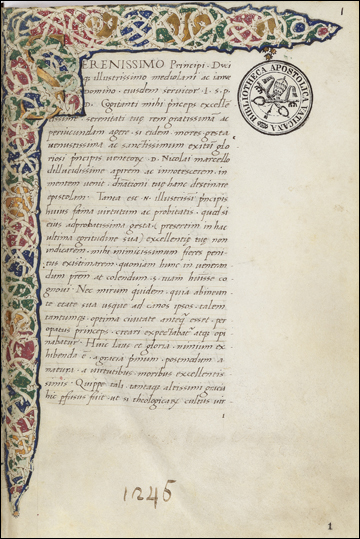 1
SERENISSIMO Principi Duci
qȝ illustrissimo mediolani ac ianue
domino eiusdem servitor I. S. P
D. Cogitanti mihi princeps excelle
serenitati tue rem gratissimā ac
periucundam agere si eidem mores gesta
venustissima ac sanctissimum exitū glo
riosi principis venetorȝ D. Nicolai marcello
dillucidissime apirem ac innotescerem in
mentem venit dnationi tue hanc destinare
epistolem. Tanta est N. illustrissi principis
huius fama virtutum ac probitatis
eius adprobatissima gesta presertim in hac
ultima egritudine sua excellentie tue non
indicarem mihi nimiussimum fieret peni
tus existimarem quoniam hunc in veneran
dum prem ac colendum s. tuam habuisse co
gnovi. Nec mirum quidem quia ab ineun
te etate sua usque ad annos ipsos talem
tantumqȝ optima civitate anteqȝ esset per
opatus princeps creari expectabat atqȝ opi
nabatur. Huic laus et gloria nimium ex
hibenda ē a gracia primum postmodum a
natura a virtutibus moribus excellentis
simis. Quippe tali tantaqȝ altissimi gracia
hic pfusus fuit ut si theologicarȝ cultus vir
1
1246
1
BIBLIOTHECA APOSTOLICA VATICANA